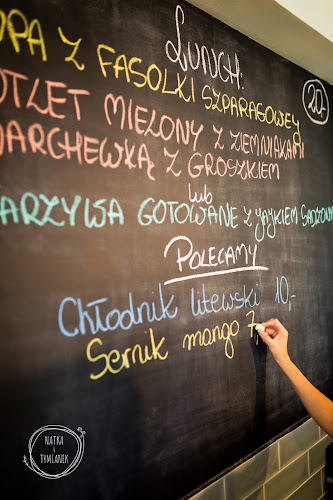 LUNCH:
20,-
UPA Z FASOLKI SZPARAGOWEJ
OTLET MIELONY Z ZIEMNIAKAMI
ARCHEWKĄ Z GROSZKIEM
lub
ARZYWA GOTOWANE Z JAJKIEM SADZONYM
POLECAMY
Chłodnik litewski 10,-
Sernik mango 7
NATKA
i
TYMIANEK